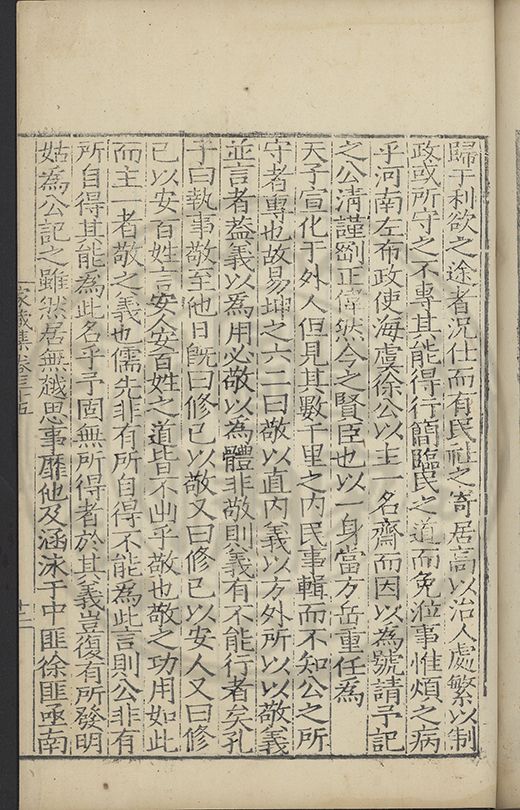 歸于利欲之途者況仕而有民社之寄居高以治人處繁以制
政或所守之不專其能得行簡臨民之道而免涖事惟煩之病
乎河南左布政使海虞徐公以主一名齋而因以為號請予記
之公清謹劉正偉然今之賢臣也以一身當方岳重任為
天子宣化于外人但見其數千里之內民事輯而不知公之所
守者專也故易坤之六二曰敬以直內義以方外所以以敬義
並言者葢義以為用必敬以為體非敬則義有不能行者矣孔
子曰執事敬至他日旣曰修己以敬又曰修己以安人又曰修
己以安百姓言安人安百姓之道皆不出乎敬也敬之功用如此
而主一者敬之義也儒先非有所自得不能為此言則公非有
所自得其能為此名乎予固無所得者於其義豈復有所發明
姑為公記之雖然居無越思事靡他及涵泳于中匪徐匪亟南
家藏集卷三十五
十二